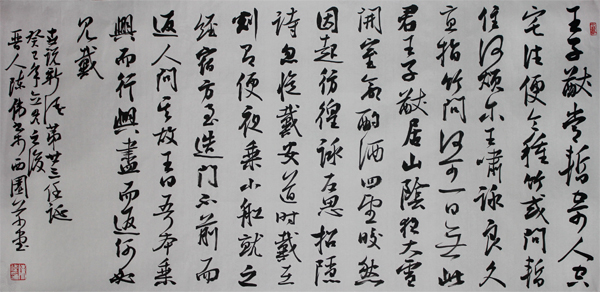 王子猷嘗暫寄人空
宅住便令種竹或問暫
住何煩尔王嘯詠良久
直指竹問何可一日無此
君王子猷居山陰夜大雪
開室命酌酒四望皎然
因起彷徨詠左思招隱
詩忽憶戴安道時戴在
剡即便夜乘小船就之
經宿方至造門不前而
返人問其故王曰吾本乘
興而行興盡而返何必
見戴
世説新語第廿三任誕
癸巳年立之後
晉人陳偉西園草堂